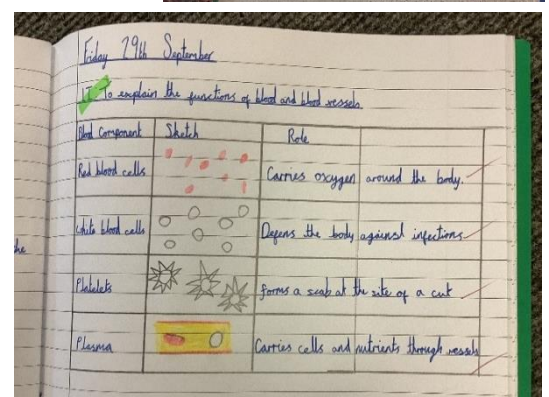 Friday 29th September
LI To explain the functions of blood and blood vessels.
Blood Component Sketch Role
Red blood cells Carries oxygen around the body.
White blood cells Defens the body against infections
Platelets forms a scab at the site of a cut
Plasma Carries cells and nutrients through vessels
he